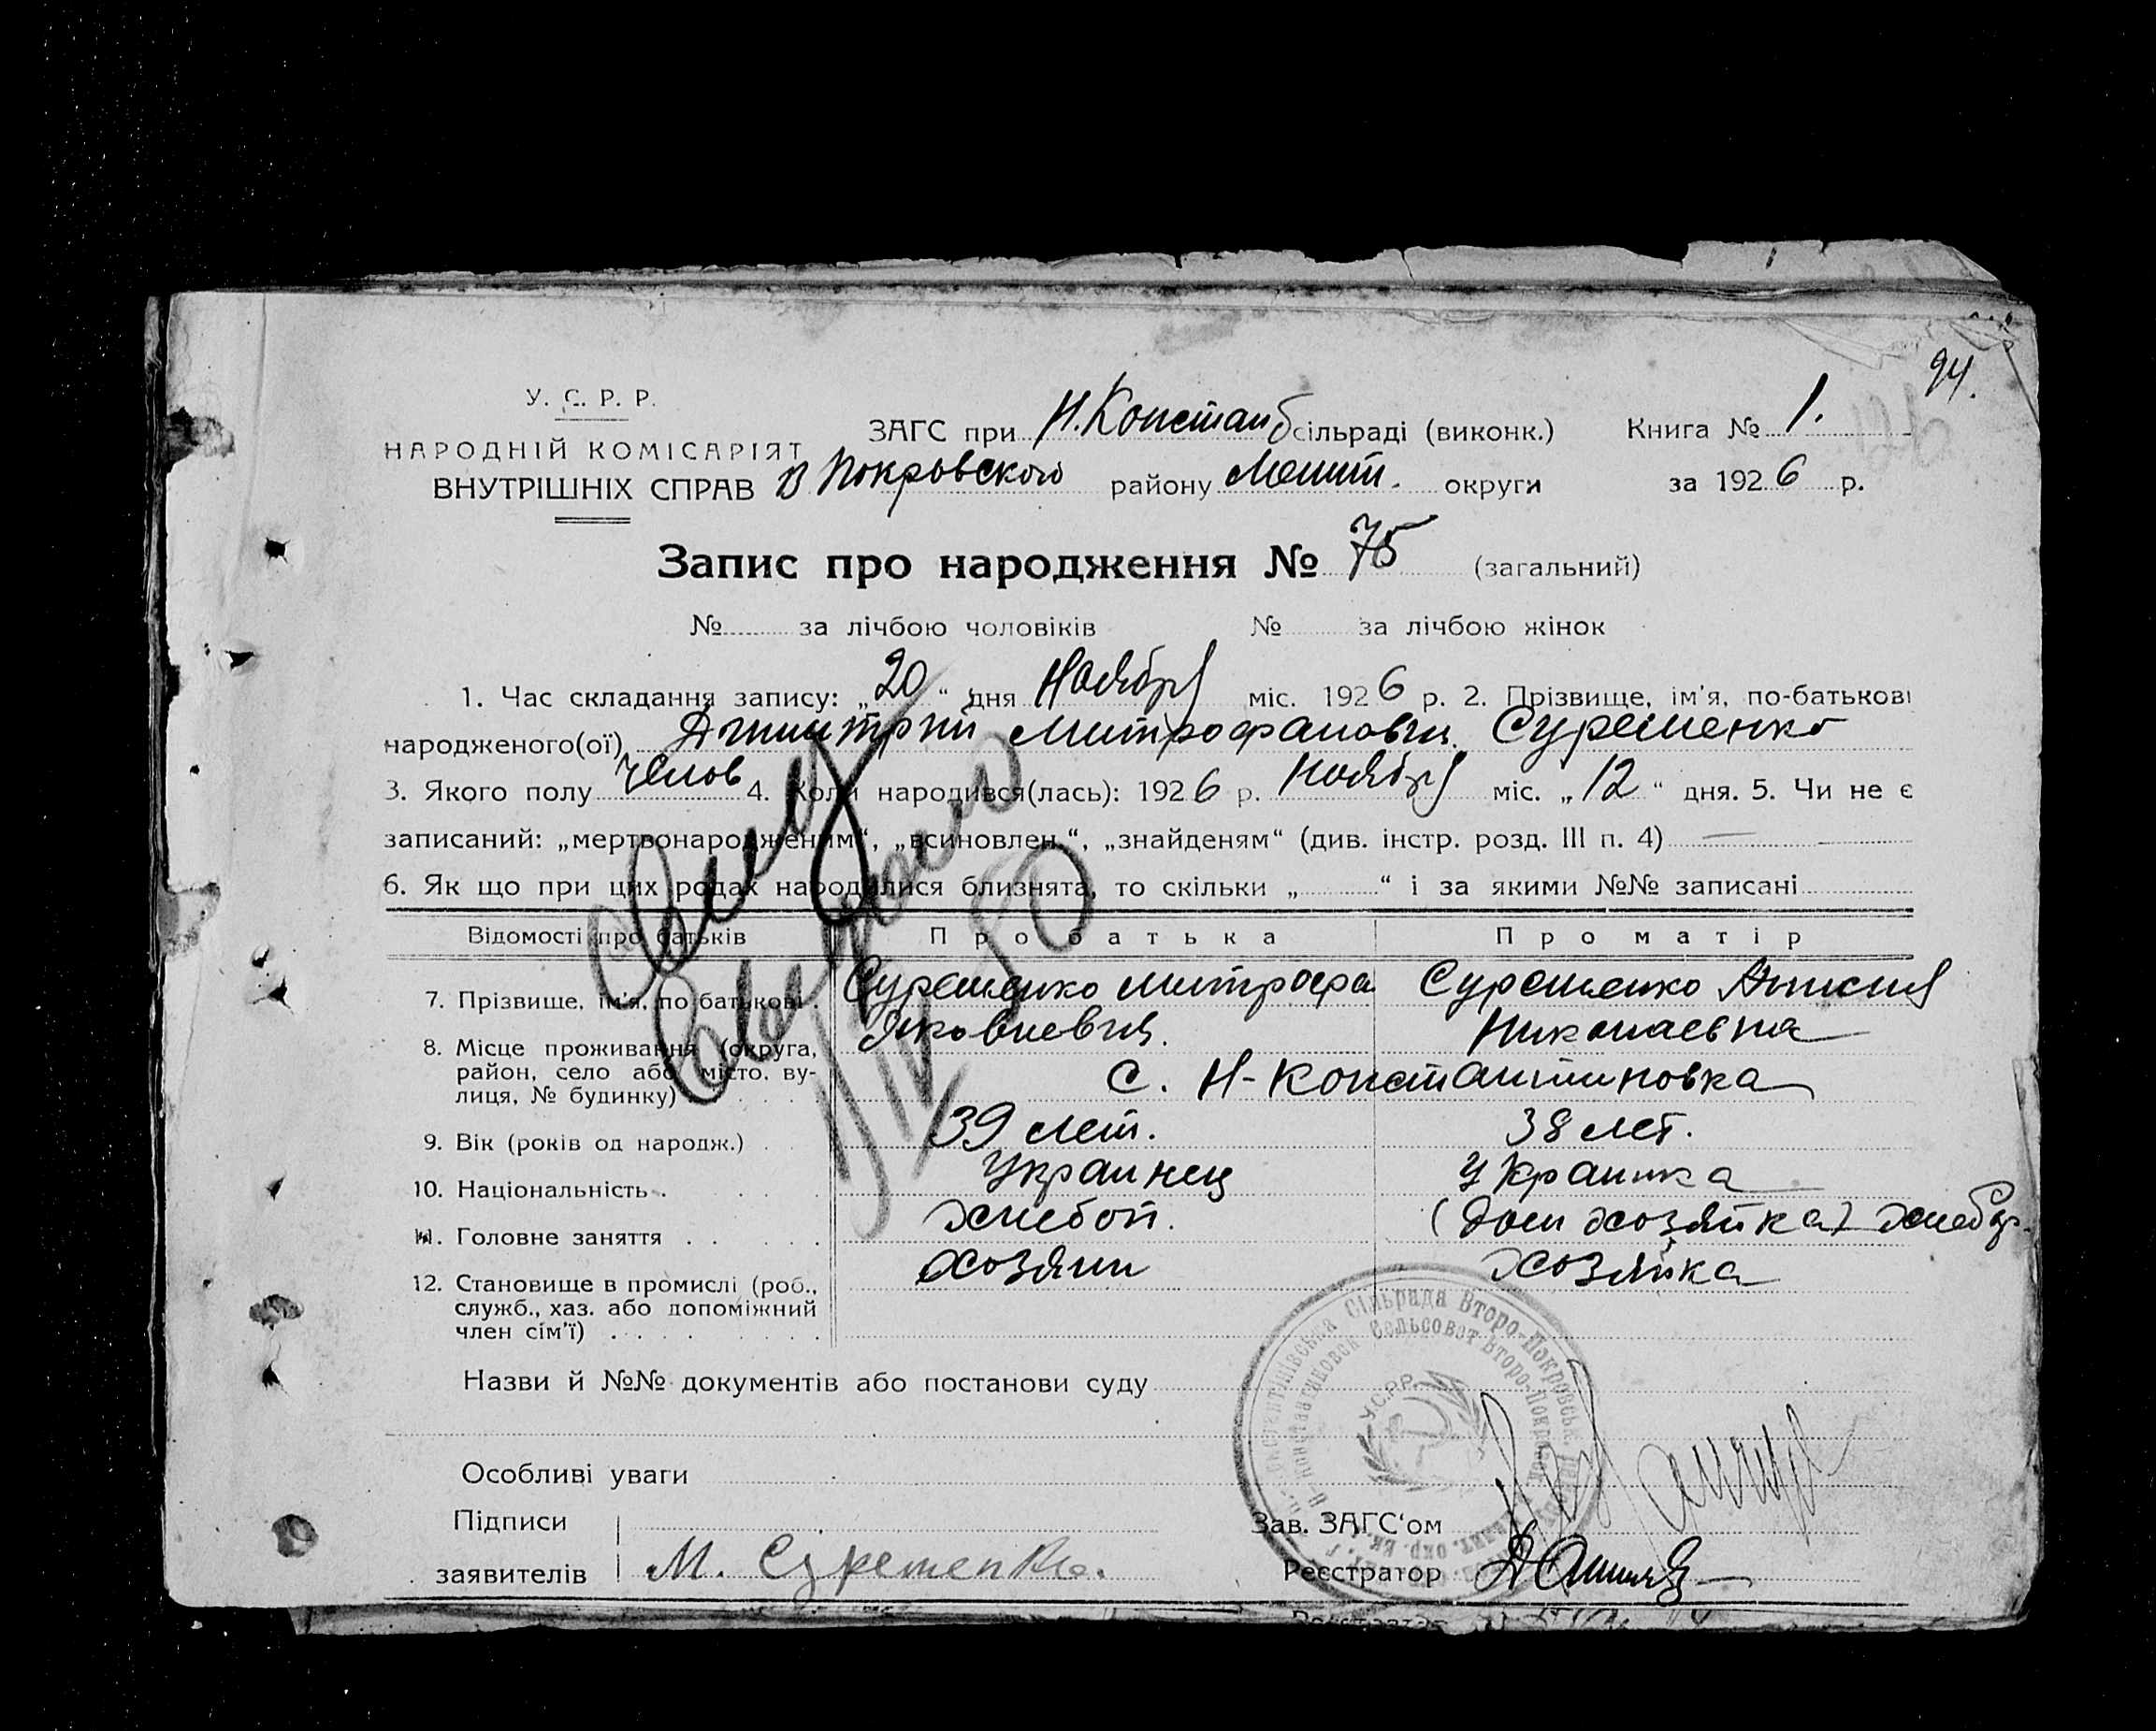 94.
У. С. Р. Р.
НАРОДНІЙ КОМІСАРІЯТ
ВНУТРІШНІХ СПРАВ
ЗАГС при Н. Констан сільраді (виконк.) Книга № 1.
В Покровского району Мелит. округи за 1926 р.
Запис про народження № 75 (загальний)
№ за лічбою чоловіків № за лічбою жінок
1. Час складання запису: „20“ дня Ноября міс. 1926 р. 2. Прізвище, ім'я, по-батькові
народженого(ої) Дмитрий Митрофанович Суременко
3. Якого полу челов 4. Коли народився(лась): 1926 р. ноября міс. „12“ дня. 5. Чи не є
записаний: „мертвонародженим“, „всиновлен.“, „знайденям“ (див. інстр. розд. III п. 4)
6. Як що при цих родах народилися близнята, то скільки „ “ і за якими №№ записані
Відомості про батьків Про батька Про матір
7. Прізвище, ім'я, по батькові. Суременко Митрофа Яковлевич. Суременко Анисия Николаевна
8. Місце проживання (округа,
район, село або місто, ву-
лиця, № будинку) с. Н-Константиновка
9. Вік (років од народж.) 39 лет. 38 лет.
10. Національність. Украинец Украинка
11. Головне заняття хлебоп. (дом хозяйка)
12. Становище в промислі (роб.,
служб., хаз. або допоміжний
член сім'ї) хозяин хозяйка
Назви й №№ документів або постанови суду
Особливі уваги
Підписи
заявителів М. Суременко.
Зав. ЗАГС'ом
Реєстратор
Сільрада Второ-Покровськ
Сельсовет Второ-Покровск
У.С.Р.Р.